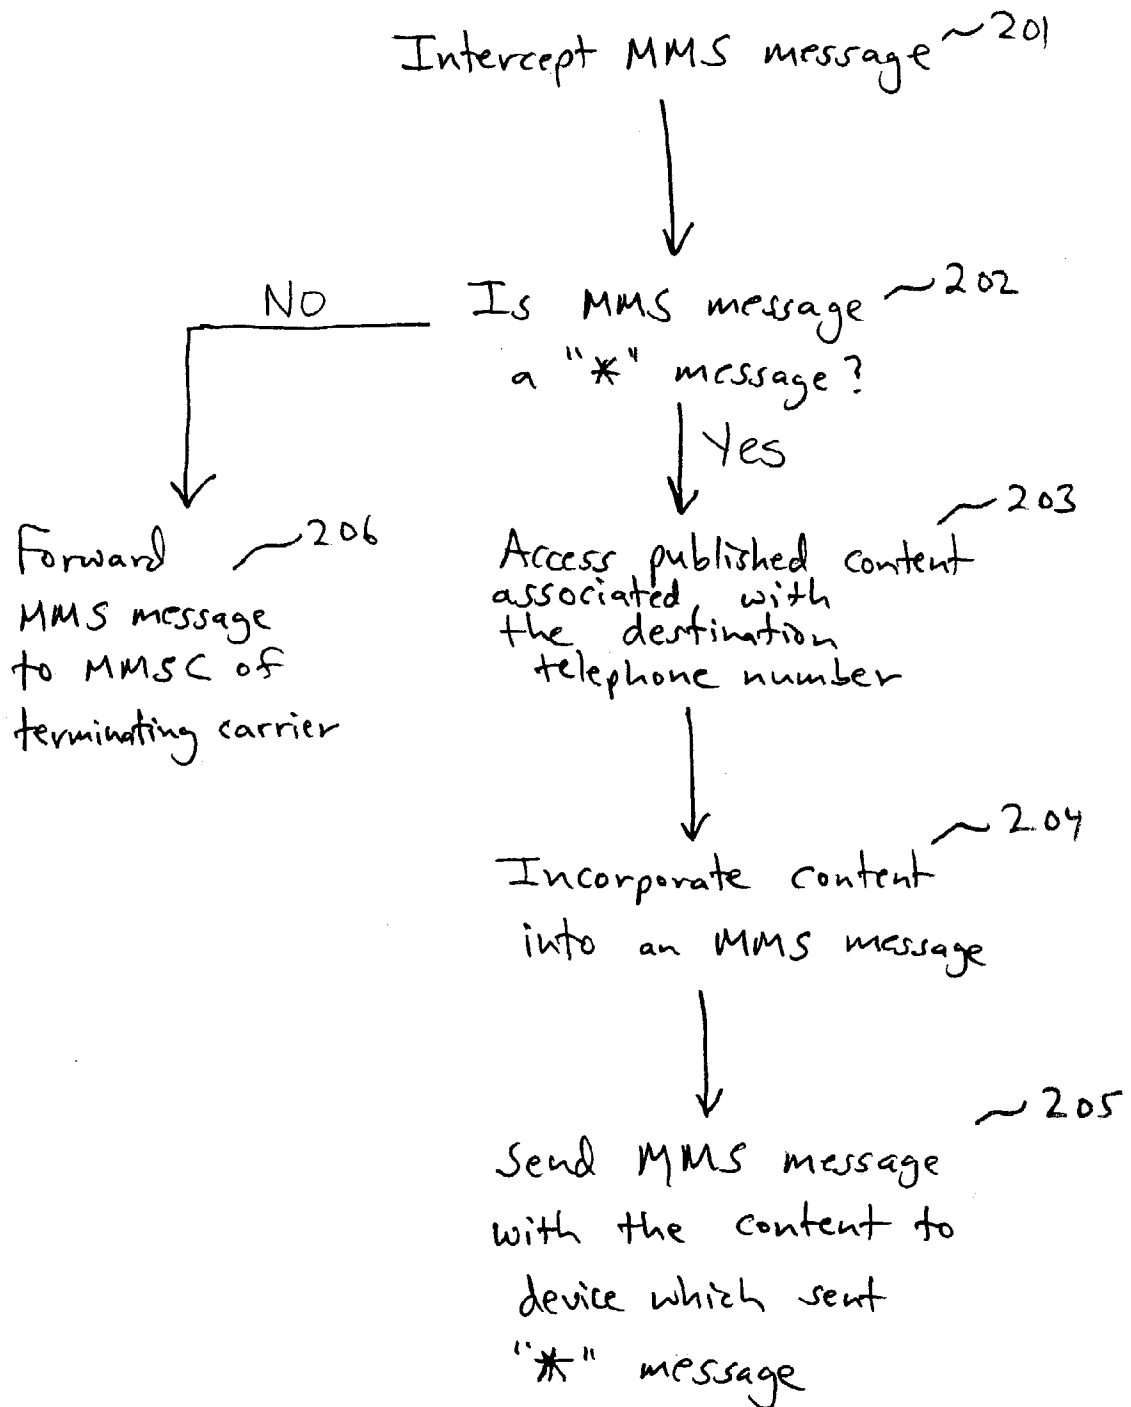 Intercept MMS message 201
Is MMS message 202
a "*" message?
No
Yes
Forward 206
MMS message
to MMSC of
terminating carrier
Access published content 203
associated with
the destination
telephone number
Incorporate content 204
into an MMS message
Send MMS message 205
with the content to
device which sent
"*" message